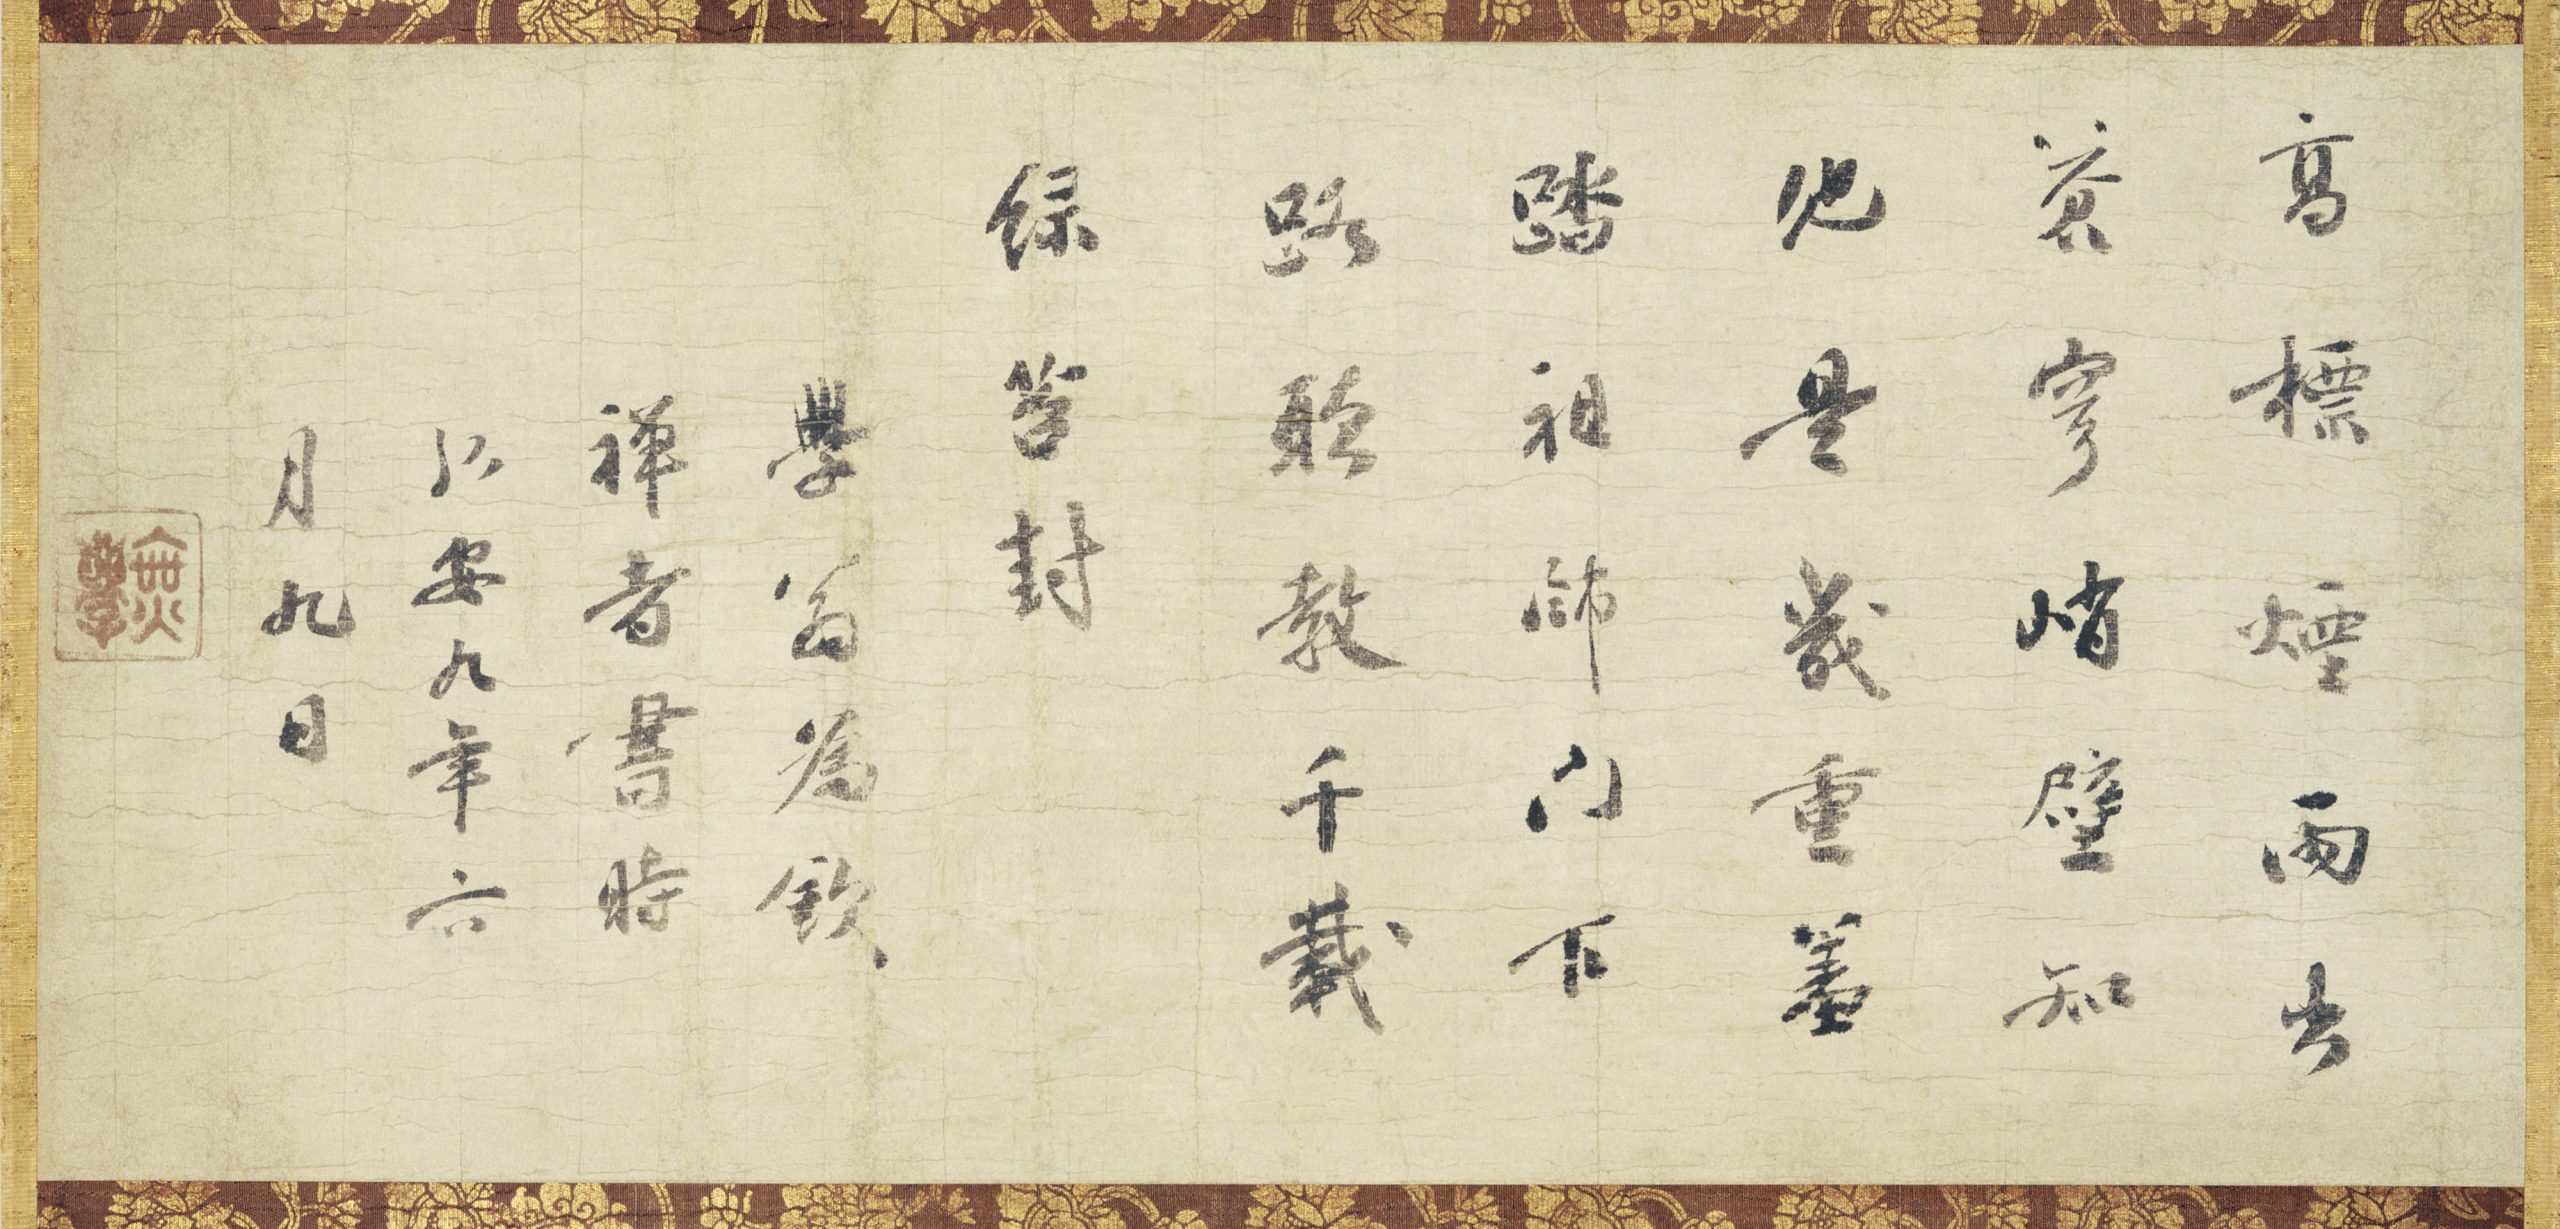 高標煙雨出
蒼穹峭壁知
他是幾重羞
踏祖師門下
路聴教千載
緑苔封
學翁為欽
禅者書時
弘安九年六
月九日
無學